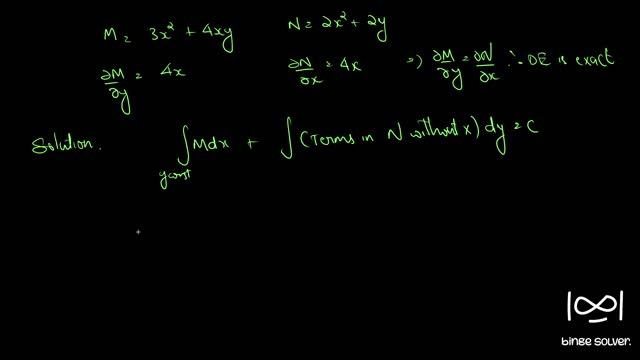 M = 3x² + 4xy N = 2x² + 2y
∂M/∂y = 4x ∂N/∂x = 4x => ∂M/∂y = ∂N/∂x ∴ DE is exact
Solution. ∫ Mdx + ∫ (Terms in N without x) dy = C
y const
|∞|
binge solver.